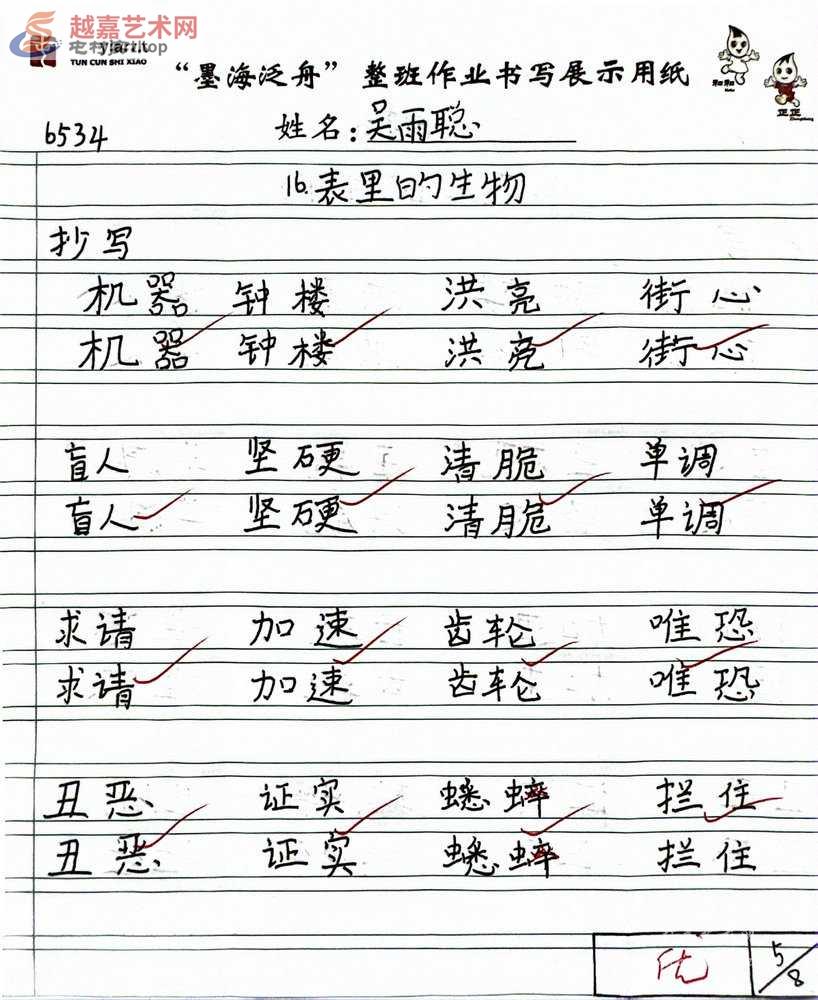 越嘉艺术网
yjart.top
TUN CUN SHI XIAO
“墨海泛舟”整班作业书写展示用纸
和和
正正
6534 姓名：吴雨聪
16.表里的生物
抄写
机器 钟楼 洪亮 街心
机器 钟楼 洪亮 街心
盲人 坚硬 清脆 单调
盲人 坚硬 清脆 单调
求请 加速 齿轮 唯恐
求请 加速 齿轮 唯恐
丑恶 证实 蟋蟀 拦住
丑恶 证实 蟋蟀 拦住
优 5/8